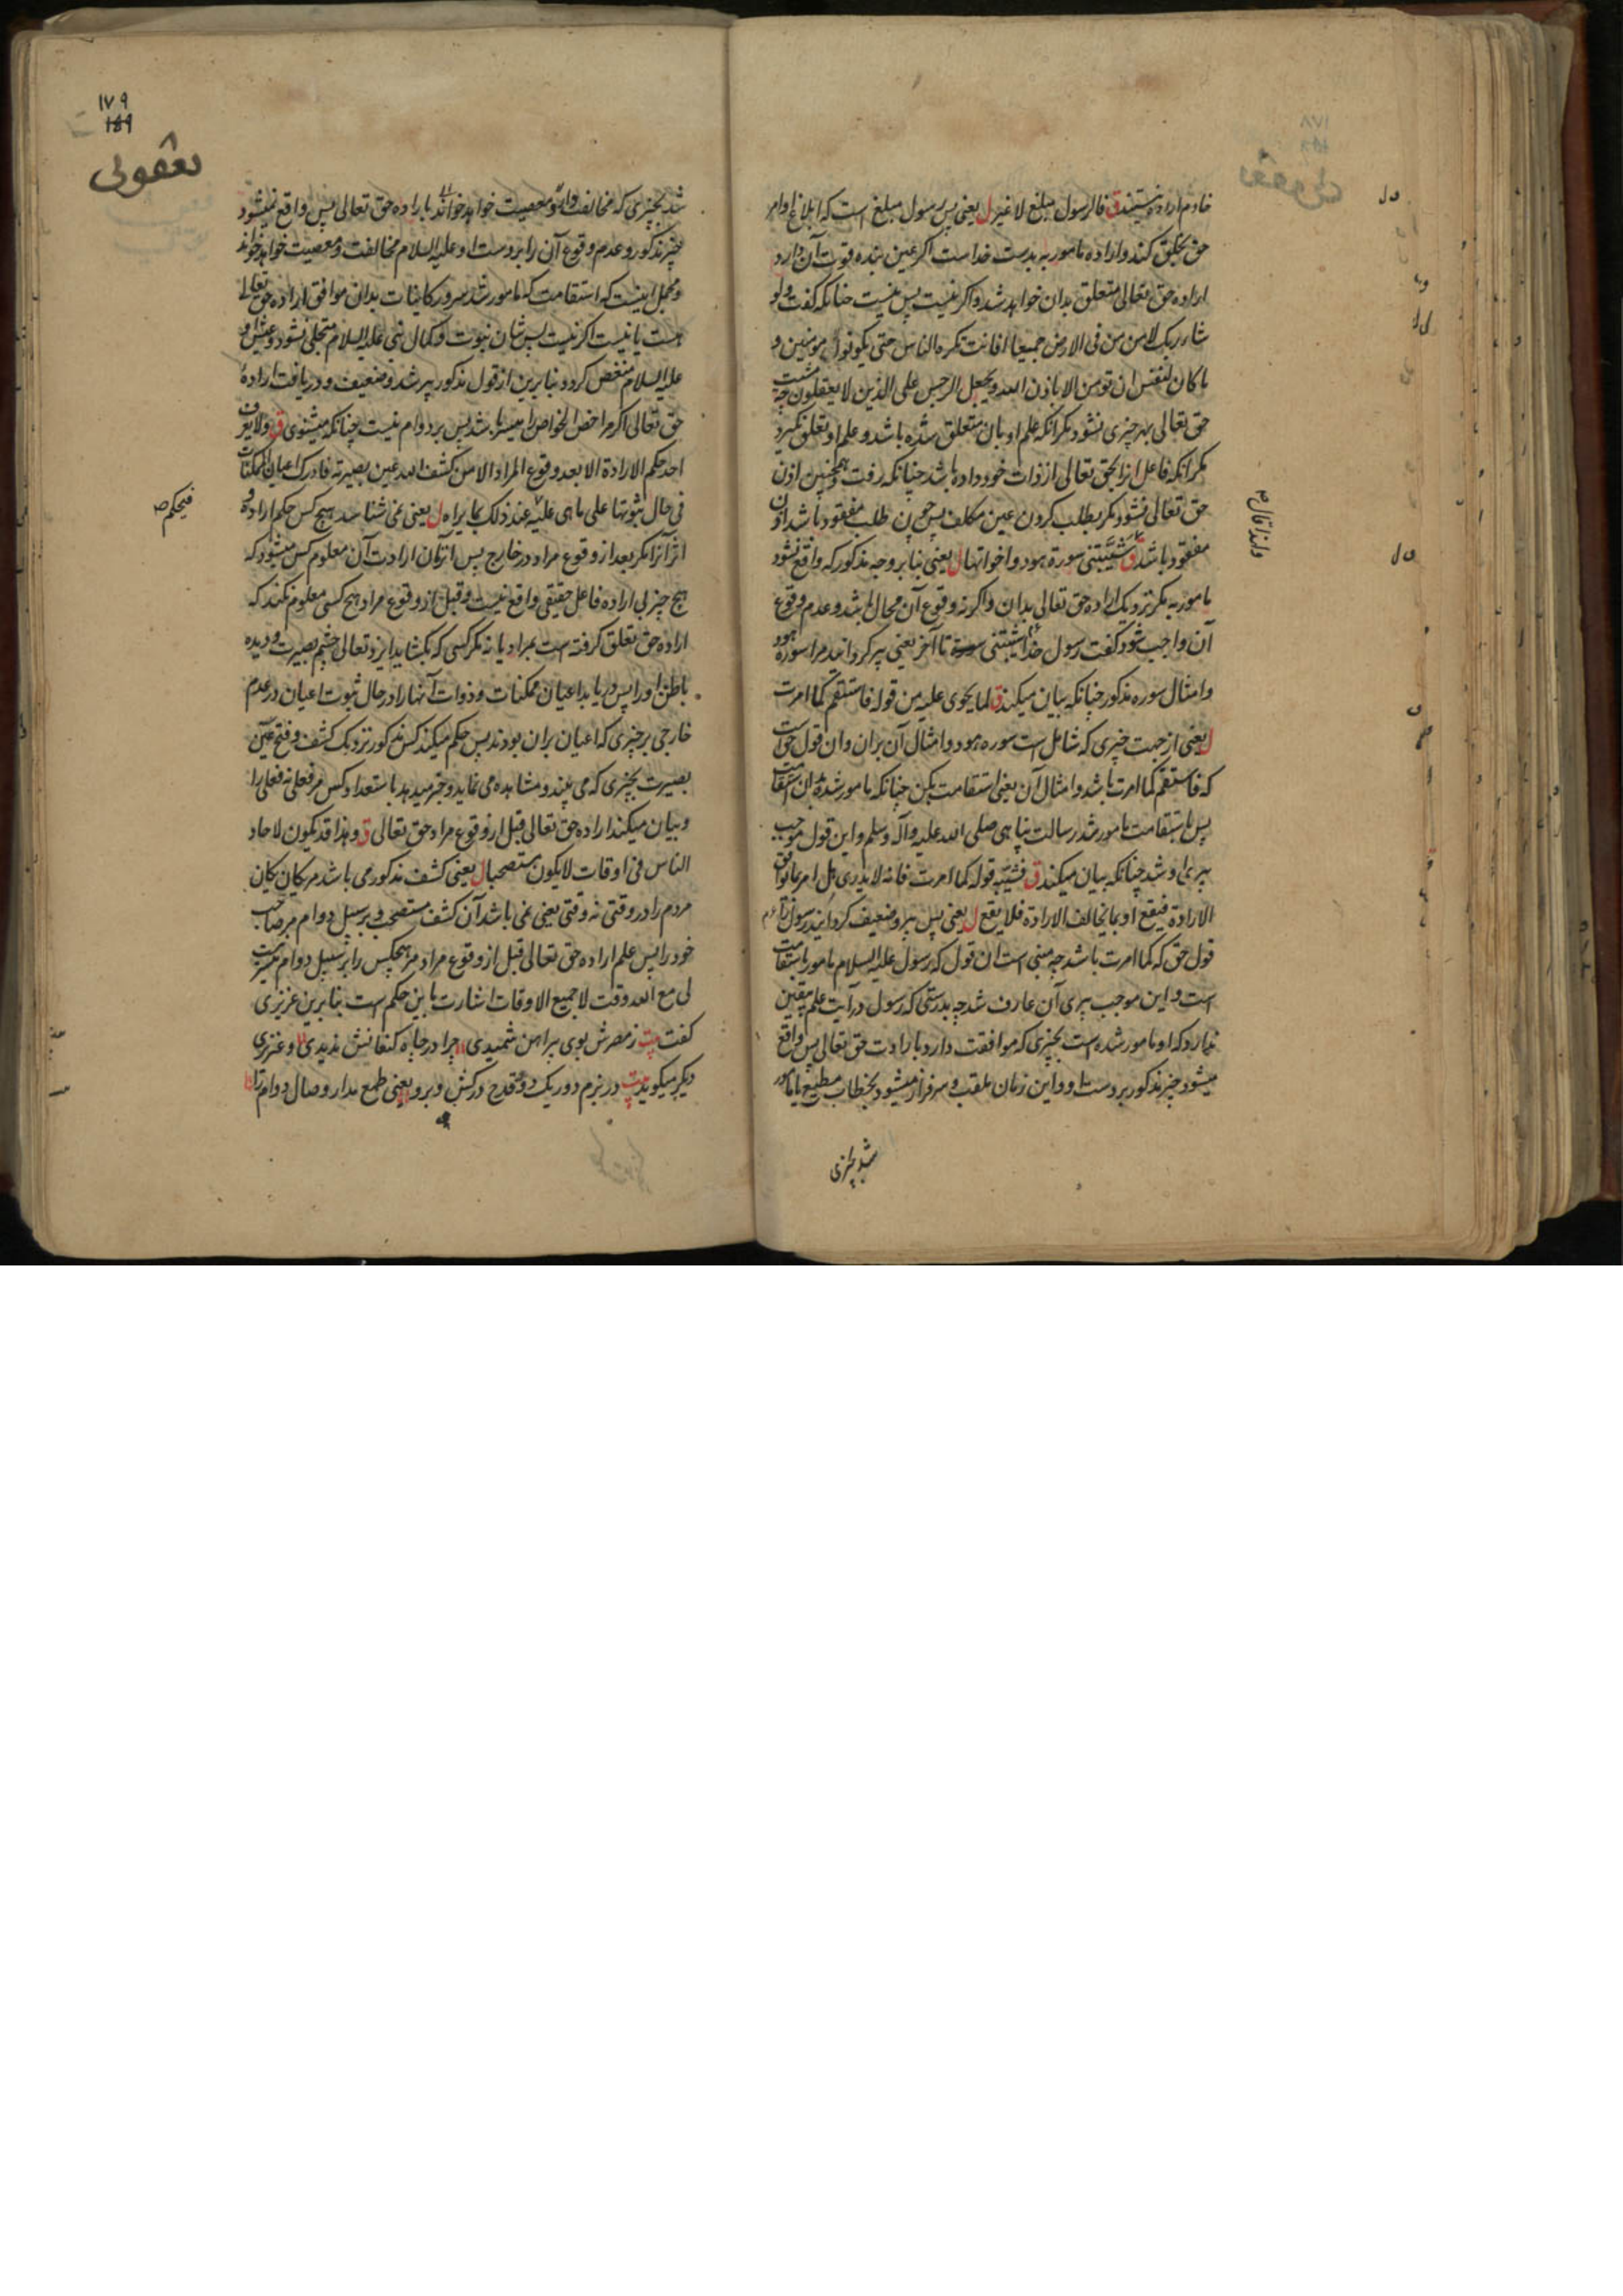 خادم اراده نیستند ق فالرسول مبلغ لا غیر ل یعنی پس رسول مبلغ است که ابلاغ اوامر
حق بخلق کند و اراده مامور به بدست خداست اگر عین بنده قوت آن دارد
اراده حق تعالی متعلق بدان خواهد شد و اگر نیست پس نیست چنانکه گفت ولو
شاء ربک لامن من فی الارض جمیعا افانت تکره الناس حتی یکونوا مومنین و
ما کان لنفس ان تومن الا باذن الله و یجعل الرجس علی الذین لا یعقلون چه مشیت
حق تعالی بهر چیزی نشود مگر آنکه علم او بآن متعلق شده باشد و علم او تعلق نگیرد
مگر آنکه فاعل انرا بحق تعالی از ذات خود داده باشد چنانکه رفت و همچنین اذن
حق تعالی نشود مگر بطلب کردن عین مکلف پس چون طلب مفقود باشد اذن
ولذا قال ص
مفقود باشد ق شیّبتنی سورة هود و اخواتها ل یعنی بنا بر وجه مذکور که واقع نشود
مامور به مگر نزدیک اراده حق تعالی بدان و اگر نه وقوع آن محال باشد و عدم وقوع
آن واجب شود گفت رسول خدا شیبتنی سورة تا آخر یعنی پیر گردانید مرا سوره هود
و امثال سوره مذکور چنانکه بیان میکند ق لما یحوی علیه من قوله فاستقم کما امرت
ل یعنی از جهت چیزی که شامل است سوره هود و امثال آن بران و ان قول حق است
که فاستقم کما امرت باشد و امثال آن یعنی استقامت بکن چنانکه مامور شدهٔ بدان استقامت
پس باستقامت مامور شد رسالت پناهی صلی الله علیه و آله و سلم و این قول موجب
پیری او شد چنانکه بیان میکند ق فشیّبه قوله کما امرت فانه لا یدری هل امر بما یوافق
الارادة فیقع او بما یخالف الارادة فلا یقع ل یعنی پس پیر و ضعیف گردانید رسول را
قول حق که کما امرت باشد چه مبنی است ان قول که رسول علیه السلام مامور باستقامت
است و این موجب پیری آن عارف شد چه بدرستی که رسول درایت علم یقین
ندارد که او مامور شده است بچیزی که موافقت دارد با رادت حق تعالی پس واقع
میشود چیز مذکور بر دست او و این زمان ملقب و سرفراز میشود بخطاب مطیع یا مامور
شد بچیزی
۱۷۹
۱۵۹
یعقوبی
شد بچیزی که مخالفت و معصیت خواهد خواند باراده حق تعالی پس واقع نمیشود
چیز مذکور و عدم وقوع آن را بر دست او علیه السلام مخالفت و معصیت خواهد خواند
و مجمل اینست که استقامت که مامور شد سرور کاینات بدان موافق اراده حق تعالی
هست یا نیست اگر نیست پس شان نبوت و کمال نبی علیه السلام متجلی نشود و عیش او
علیه السلام منغص گردد بنا برین از قول مذکور پیر شد و ضعیف و دریافت ارادهٔ
حق تعالی اگر مر اخص الخواص را میسر باشد پس بر دوام نیست چنانکه میشنوی ق ولا یعرف
احد حکم الارادة الا بعد وقوع المراد الا من کشف الله عین بصیرته فادرک اعیان الممکنات
فی حال ثبوتها علی ما هی علیه عند ذلک بما یراه ل یعنی نمی شناسد هیچ کس حکم اراده و
فیحکم ص
اثر آنرا مگر بعد از وقوع مراد در خارج پس انزمان ارادت آن معلوم کس میشود که
هیچ چیز بی اراده فاعل حقیقی واقع نیست و قبل از وقوع مراد هیچ کسی معلوم نکند که
اراده حق تعلق گرفته است بمراد یا نه مگر کسی که بگشاید ایزد تعالی چشم بصیرت و دیده
باطن او را پس دریابد اعیان ممکنات و ذوات آنها را در حال ثبوت اعیان در عدم
خارجی بر چیزی که اعیان بران بودند پس حکم میکند کس مذکور نزدیک کشف و فتح عین
بصیرت بچیزی که می بیند و مشاهده می نماید و خبر میدهد باستعداد کس مر فعلی نه فعلی را
و بیان میکند اراده حق تعالی قبل از وقوع مراد حق تعالی ق و هذا قد یکون لاحاد
الناس فی اوقات لا یکون مستصحبا ل یعنی کشف مذکور می باشد مر یکان یکان
مردم را در وقتی نه وقتی یعنی نمی باشد آن کشف مستصحب و بر سبیل دوام مر صاحب
خود را پس علم اراده حق تعالی قبل از وقوع مراد مر هیچکس را بر سبیل دوام میسر نیست
لی مع الله وقت لا جمیع الاوقات اشارت باین حکم است بنا برین عزیزی
گفت بیت ز مصرش بوی پیراهن شمیدی چرا در چاه کنعانش ندیدی و عزیزی
دیگر میگوید بیت در بزم دور یک دو قدح درکش و برو یعنی طمع مدار وصال دوام را